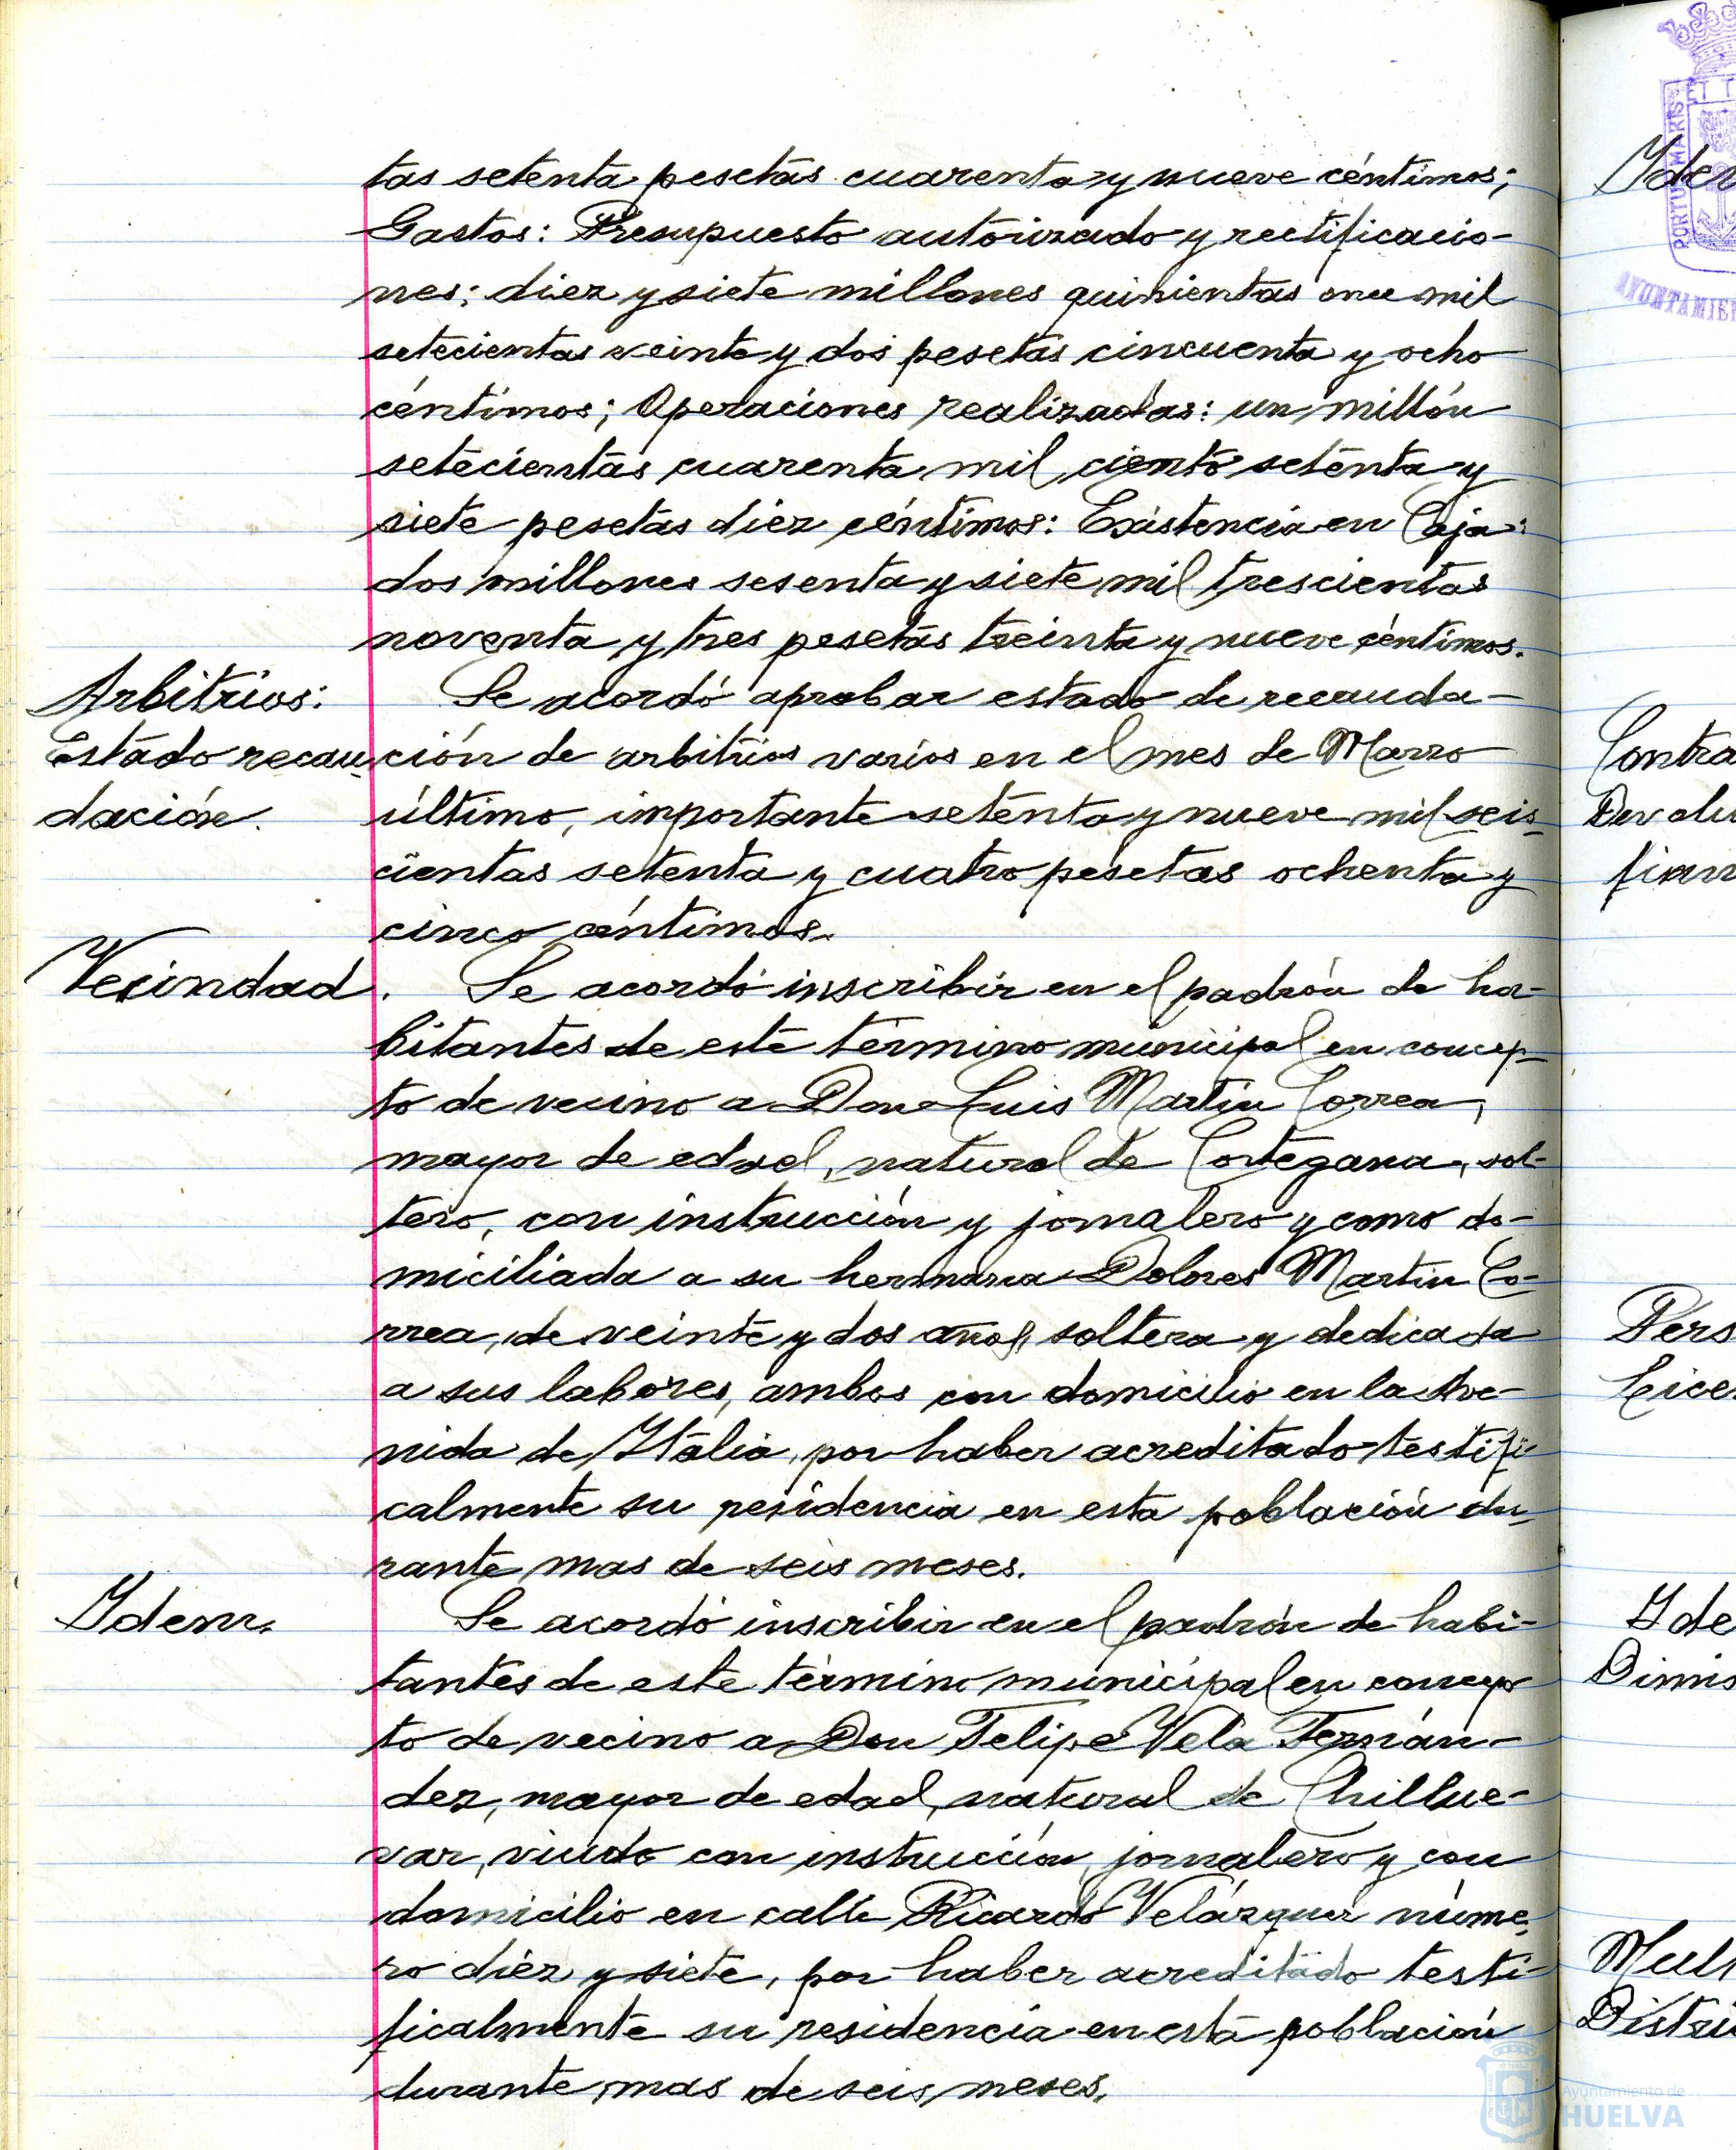 tas setenta pesetas cuarenta y nueve céntimos;
Gastos: Presupuesto autorizado y rectificacio-
nes: diez y siete millones quinientas once mil
setecientas veinte y dos pesetas cincuenta y ocho
céntimos; Operaciones realizadas: un millón
setecientas cuarenta mil ciento setenta y
siete pesetas diez céntimos: Existencia en Caja:
dos millones sesenta y siete mil trescientas
noventa y tres pesetas treinta y nueve céntimos.
Arbitrios:
Estado recau-
dación.
Se acordó aprobar estado de recauda-
ción de arbitrios varios en el mes de Marzo
último, importante setenta y nueve mil seis-
cientas setenta y cuatro pesetas ochenta y
cinco céntimos.
Vecindad.
Se acordó inscribir en el padrón de ha-
bitantes de este término municipal en concep-
to de vecino a Don Luis Martín Correa,
mayor de edad, natural de Cortegana, sol-
tero, con instrucción y jornalero y como do-
miciliada a su hermana Dolores Martín Co-
rrea, de veinte y dos años, soltera y dedicada
a sus labores, ambos con domicilio en la Ave-
nida de Italia, por haber acreditado testifi-
calmente su residencia en esta población du-
rante mas de seis meses.
Idem.
Se acordó inscribir en el padrón de habi-
tantes de este término municipal en concep-
to de vecino a Don Felipe Vela Fernán-
dez, mayor de edad, natural de Chillue-
var, viudo con instrucción, jornalero y con
domicilio en calle Ricardo Velázquez núme-
ro diez y siete, por haber acreditado testi-
ficalmente su residencia en esta población
durante mas de seis meses.
PORTUS MARIS
ET T
AYUNTAMIE
Iden
Contra
Devolu
fian
Pers
Lice
Ide
Dimis
Mult
Distri
Ayuntamiento de
HUELVA